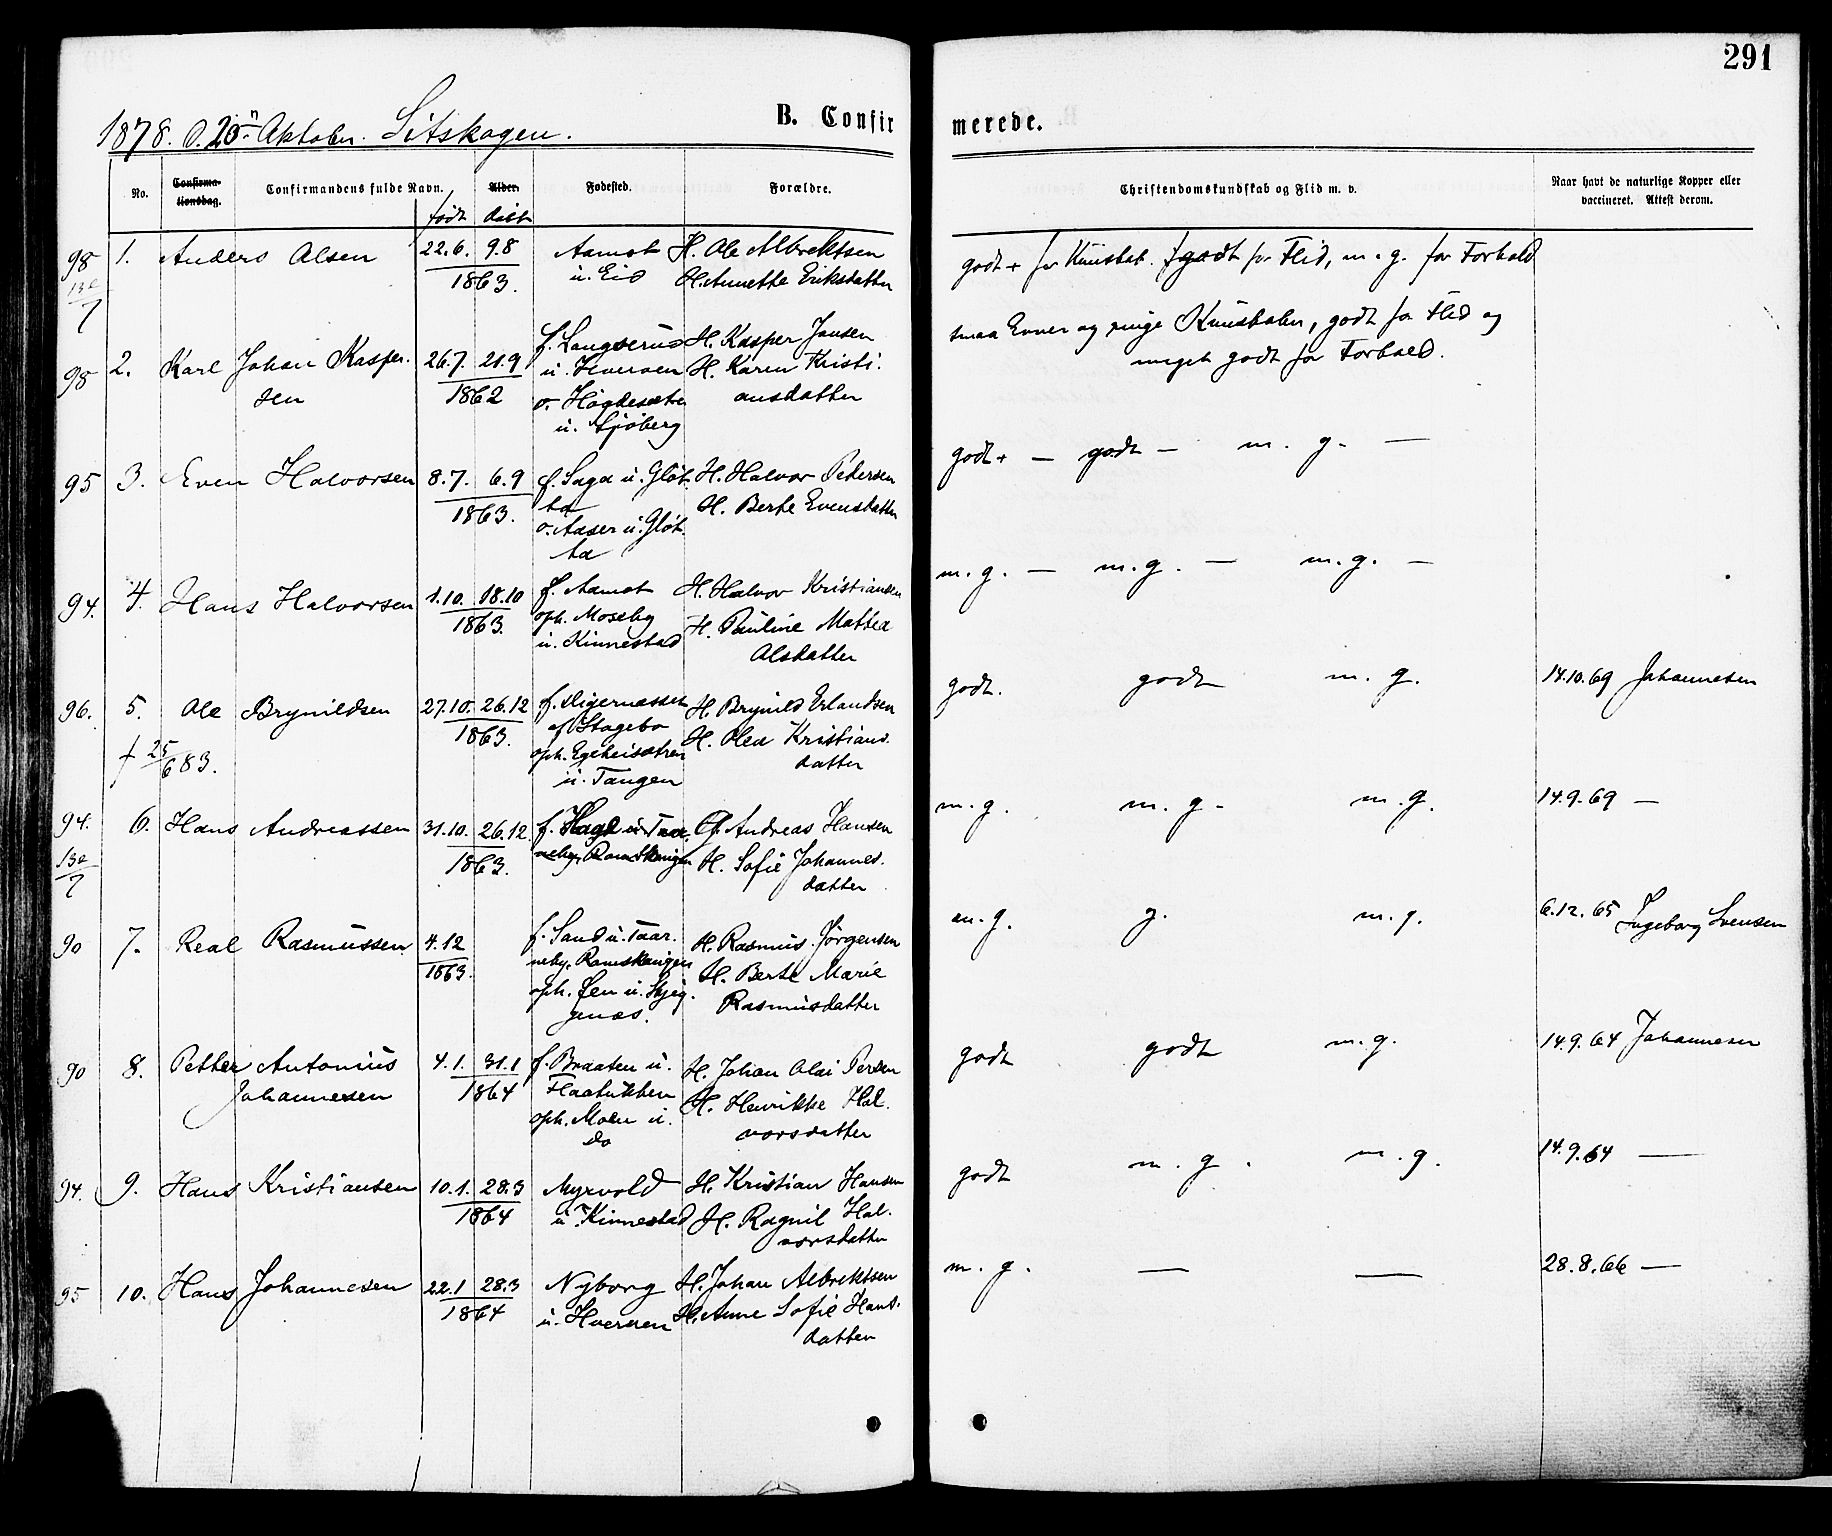 291
1878. d. 20n Oktober. Sitskogen.
B. Confirmerede.
No.
Confirmationsdag.
Confirmandens fulde Navn.
Alder.
født døbt
Fødested.
Forældre.
Christendomskundskab og Flid m. v.
Naar havt de naturlige Kopper eller
vaccineret. Attest derom.
98 1. Anders Olsen 22.6. 9.8 Aamot H. Ole Albrektsen
13e/7 1863. u. Eid H. Annette Eriksdatter
godt + for Kundskab. godt for Flid, m. g. for Forhold
98 2. Karl Johan Kasper. 26.7. 21.9 f. Langserud H. Kasper Jansen
sen 1862 u. H. Karen Kristi.
o. Høgdesætre ansdatter
u. Sjøberg
smaa Evner og ringe Kundskaber, godt for Flid og
meget godt for Forhold.
95 3. Even Halvorsen 8.7. 6.9 f. Saga u. Gløt. H. Halvor Pedersen
1863. ta H. Berte Evensdatter
o. Aaser u. Gløt.
ta
godt + — godt — m. g. —
94. 4. Hans Halvorsen 1.10. 18.10 f. Aamot H. Halvor Kristiansen
1863. oph. Moseby H. Pauline Mattea
u. Kinnestad Olsdatter
m. g. — m. g. — m. g. —
96. 5. Ole Brynildsen 27.10. 26.12 f. Digernæsset H. Brynild Erlandsen
† 25/6 83. 1863. af Stagebo H. Olea Kristians.
oph. Egeheisætren datter
u. Tangen
godt. godt m. g. 14.10.69 Johannesen
94. 6. Hans Andreassen 31.10. 26.12. f. Hagl u. Taar. G. Andreas Hansen
13e/7 1863. neby, Romskougen H. Sofie Johannes.
datter
m. g. m. g. m. g. 14.9.69 —
90 7. Real Rasmussen 4.12 f. Sand u. Taar. H. Rasmus Jørgensen
1863. neby, Romskougen H. Berte Marie
oph. Øen u. Skjeg. Rasmusdatter
genæs.
m. g. g. m. g. 6.12.65 Ingeborg Svensen
90 8. Petter Antonius 4.1. 31.1 f. Braaten u. H. Johan Olai Persen
Johannesen 1864 H. Henrikke Hal.
oph. Moen u. vorsdatter
do
godt godt m. g. 14.9.64 Johannesen
94. 9. Hans Kristiansen 10.1. 28.3 Myrvold H. Kristian Hansen
1864 u. Kinnestad H. Ragnil Hal.
vorsdatter
godt m. g. m. g. 14.9.64 —
95 10. Hans Johannesen 22.1 28.3 Nyborg H. Johan Albrektsen
1864 u. Hvernen H. Anne Sofie Hans.
datter
m. g. — — 28.8.66 —